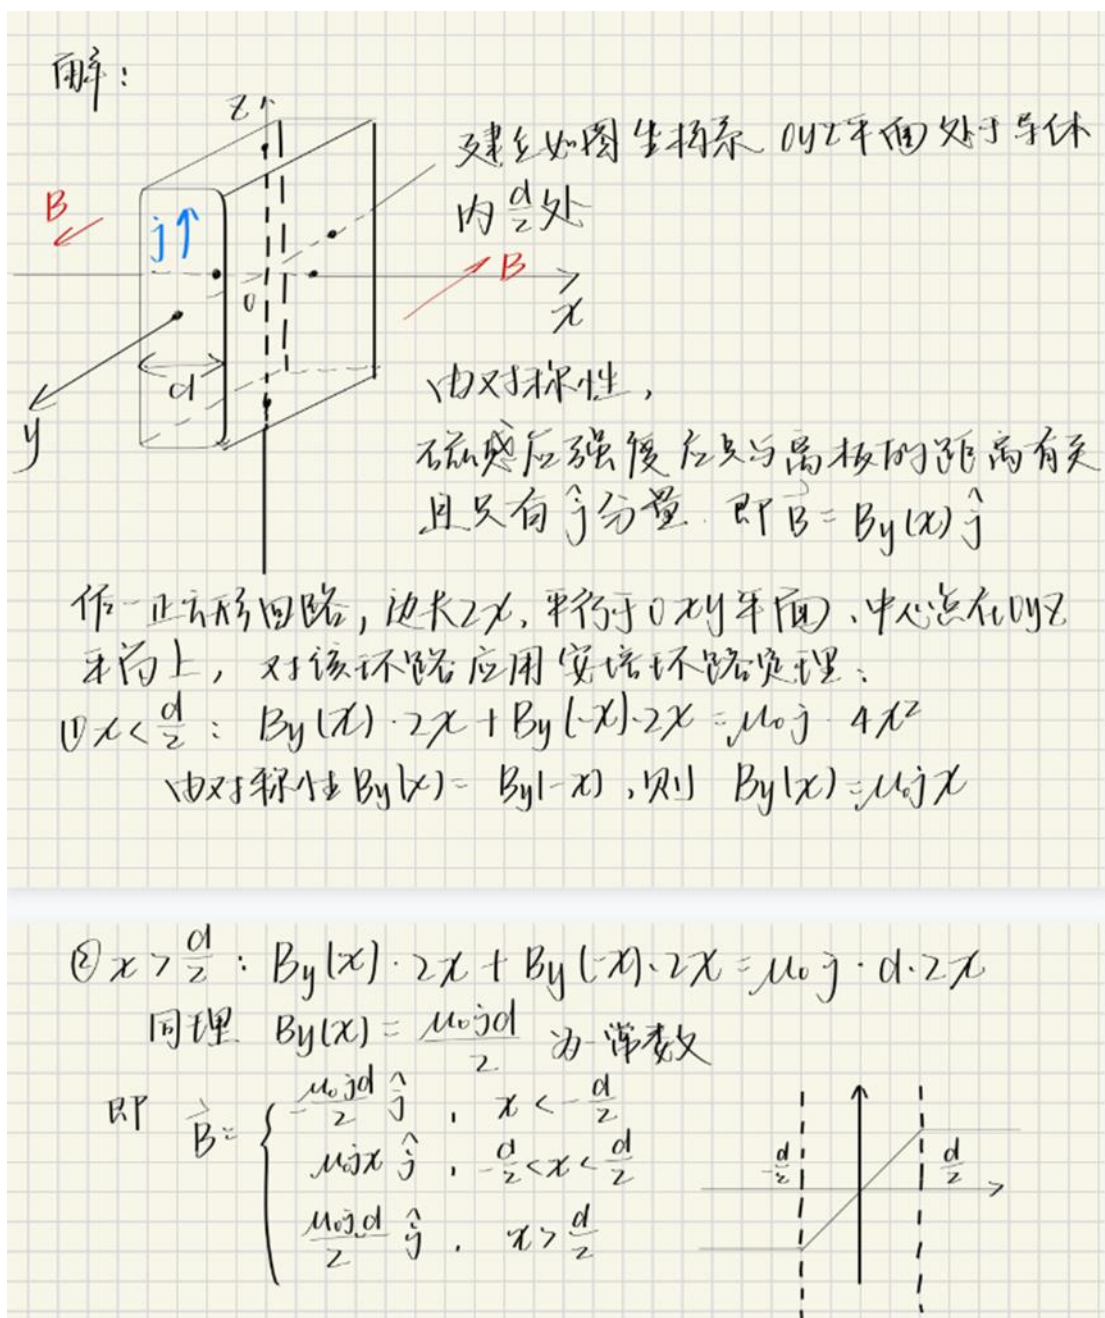 解:
z
建立如图坐标系 Oyz平面处于导体
内 d/2 处
B
j↑
B
O
x
d
y
由对称性,
磁感应强度应只与离板的距离有关
且只有 ĵ 分量. 即 B⃗ = By(x) ĵ
作一正方形回路, 边长2x, 平行于Oxy平面、中心点在Oyz
平面上, 对该环路应用安培环路定理:
① x < d/2 : By(x)·2x + By(-x)·2x = μ₀j·4x²
由对称性 By(x) = By(-x), 则 By(x) = μ₀jx
② x > d/2 : By(x)·2x + By(-x)·2x = μ₀j·d·2x
同理 By(x) = μ₀jd/2 为一常数
即 B⃗ = {
-μ₀jd/2 ĵ , x < -d/2
μ₀jx ĵ , -d/2 < x < d/2
μ₀jd/2 ĵ , x > d/2
-d/2
d/2